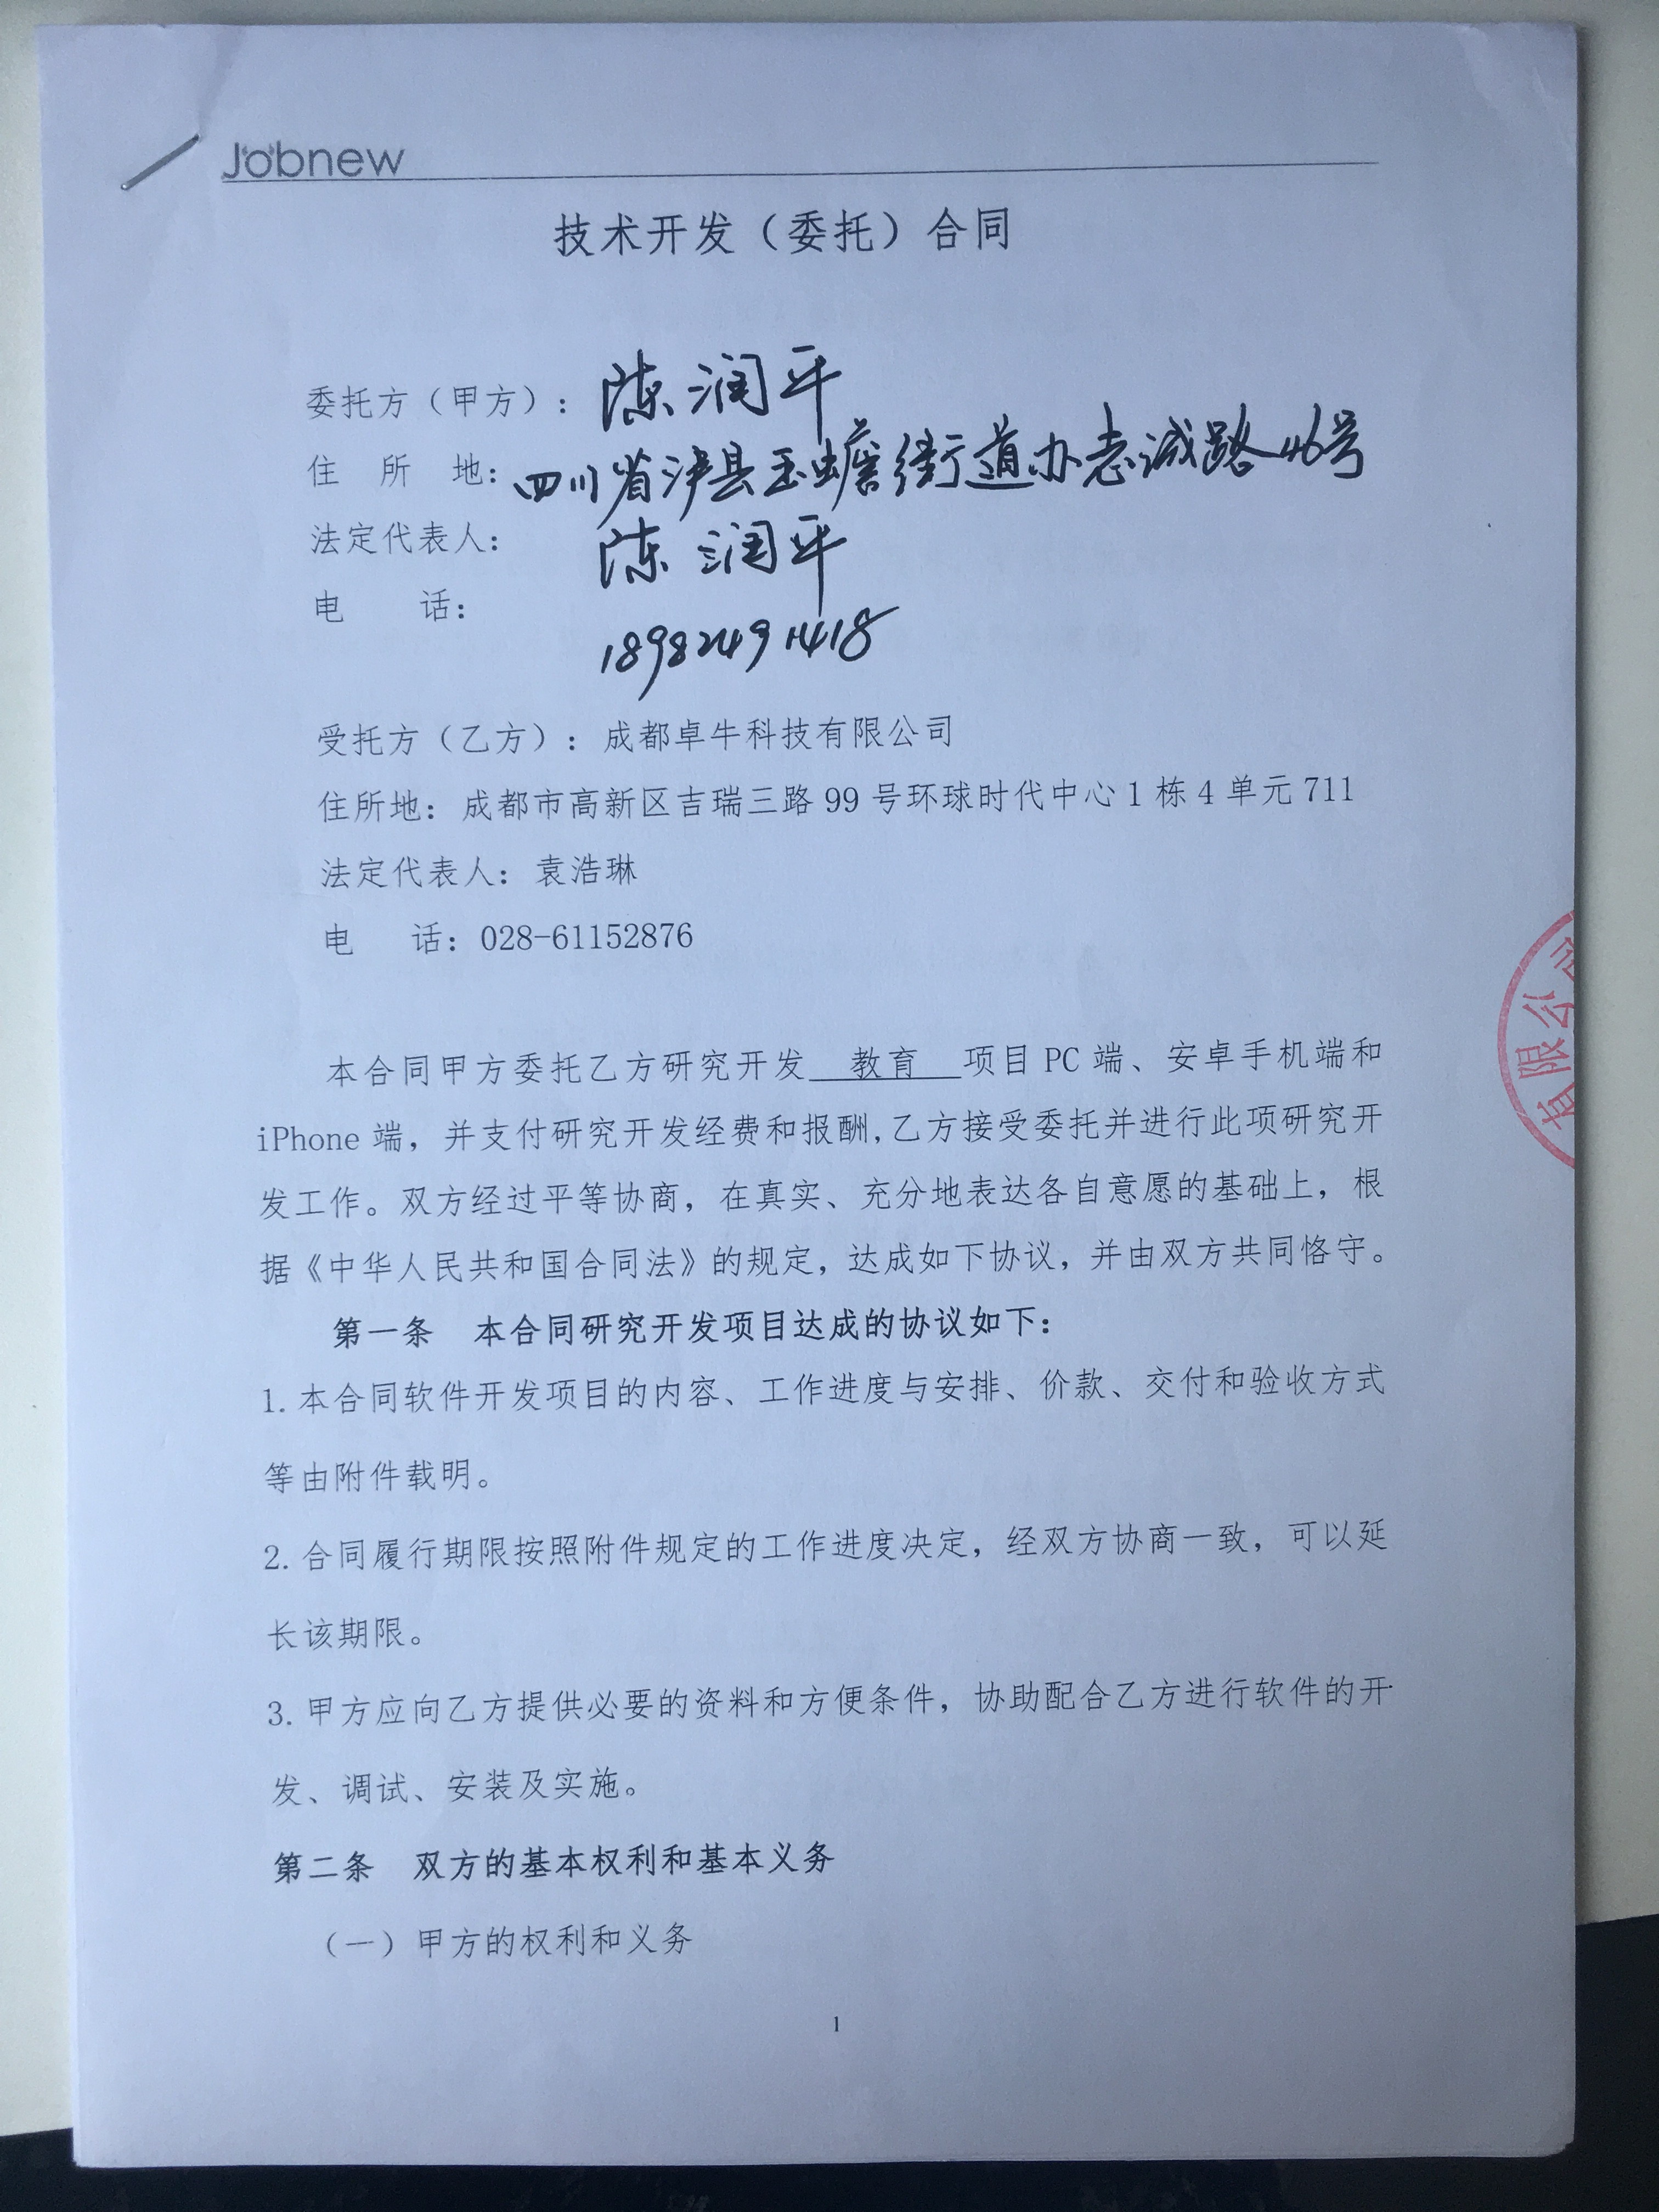 Jobnew
技术开发（委托）合同
委托方（甲方）：陈润平
住 所 地：四川省泸县玉蟾街道办志诚路46号
法定代表人：陈润平
电 话：18982491418
受托方（乙方）：成都卓牛科技有限公司
住所地：成都市高新区吉瑞三路99号环球时代中心1栋4单元711
法定代表人：袁浩琳
电 话：028-61152876
本合同甲方委托乙方研究开发 教育 项目PC端、安卓手机端和
iPhone端，并支付研究开发经费和报酬,乙方接受委托并进行此项研究开
发工作。双方经过平等协商，在真实、充分地表达各自意愿的基础上，根
据《中华人民共和国合同法》的规定，达成如下协议，并由双方共同恪守。
第一条 本合同研究开发项目达成的协议如下：
1.本合同软件开发项目的内容、工作进度与安排、价款、交付和验收方式
等由附件载明。
2.合同履行期限按照附件规定的工作进度决定，经双方协商一致，可以延
长该期限。
3.甲方应向乙方提供必要的资料和方便条件，协助配合乙方进行软件的开
发、调试、安装及实施。
第二条 双方的基本权利和基本义务
（一）甲方的权利和义务
1
有限公司